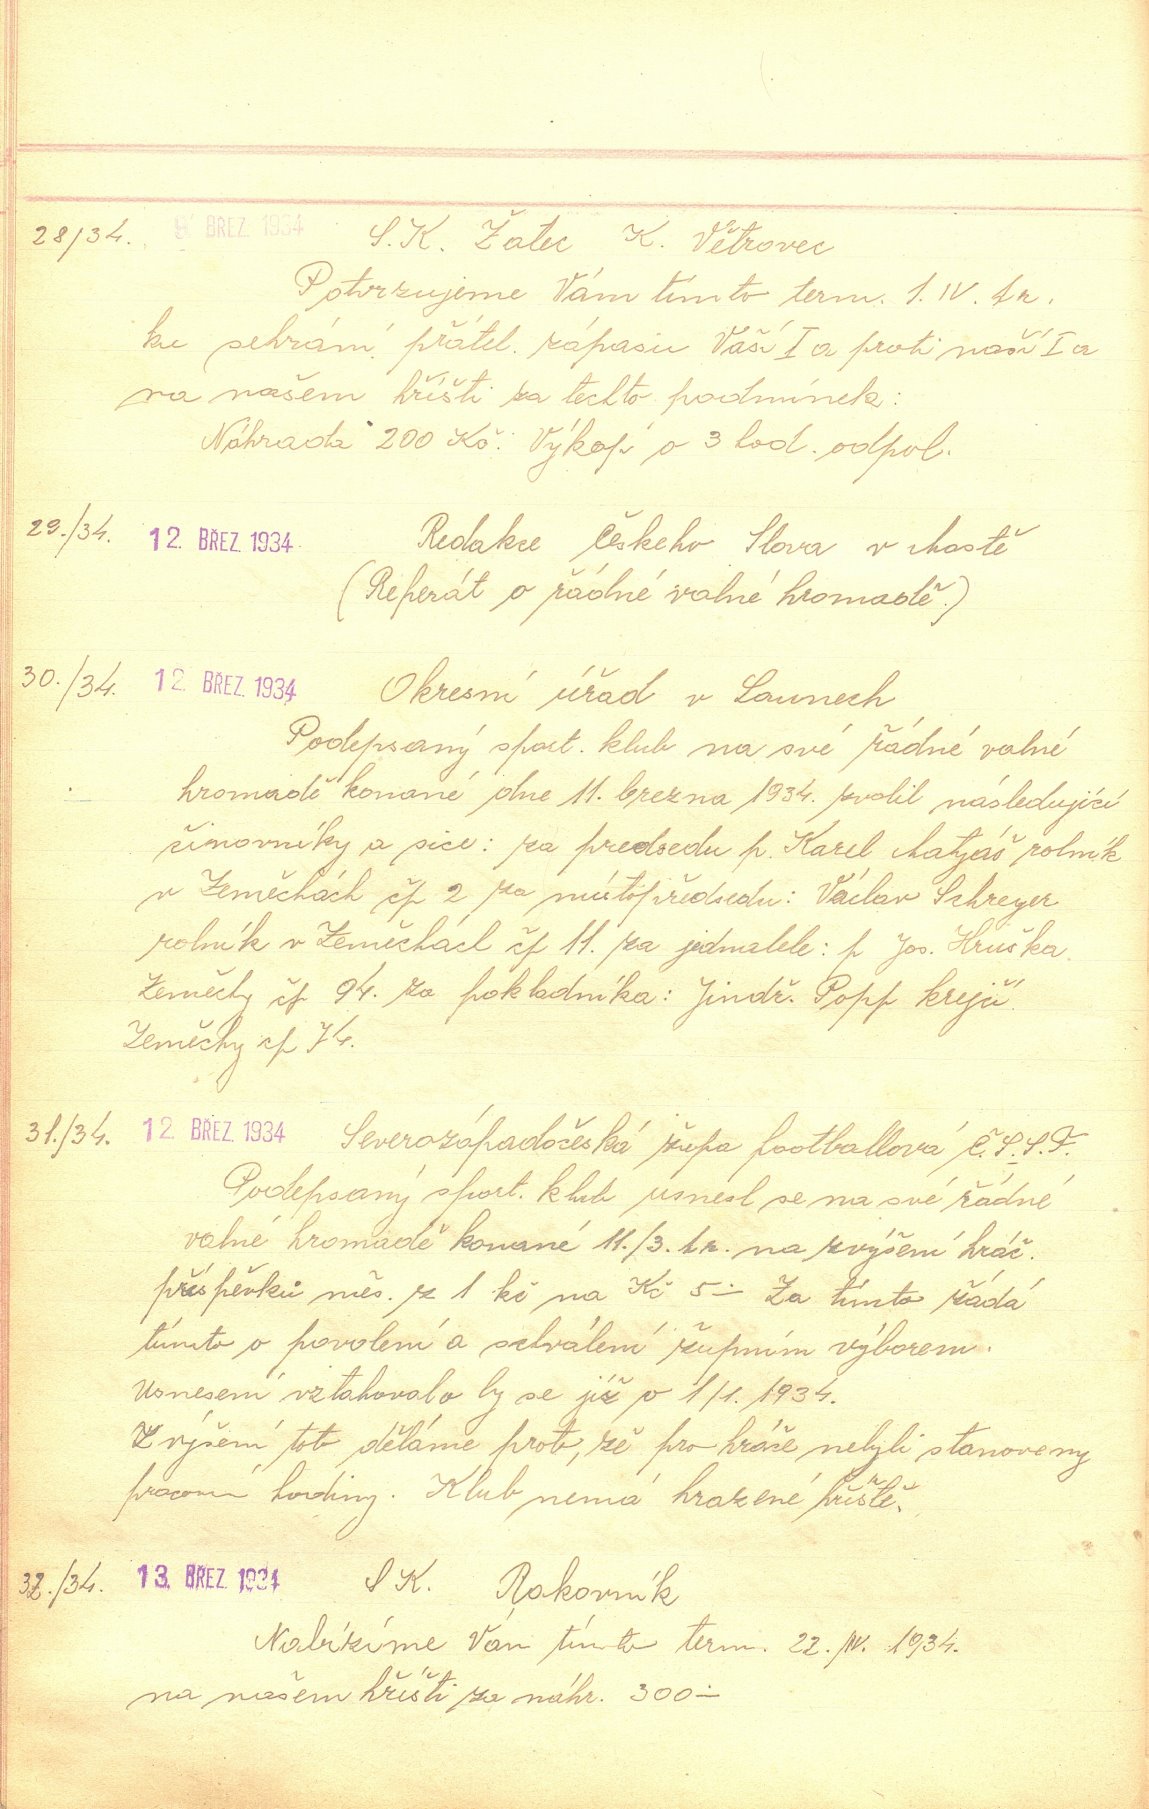 28/34. 9 BŘEZ. 1934 S.K. Žatec K. Větrovec
Potvrzujeme Vám tímto term. 1. IV. t.r.
ku sehrání přátel. zápasu Vaší I a proti naší I a
na našem hřišti za techto podmínek:
Náhrada 200 Kč. Výkop o 3 hod. odpol.
29./34. 12. BŘEZ. 1934 Redakce Českeho Slova v Mostě
(Referát o řádné valné hromadě.)
30./34. 12. BŘEZ. 1934 Okresní úřad v Lounech
Podepsaný sport. klub na své řádné valné
hromadě konané dne 11. března 1934. zvolil následující
činovníky a sice: za předsedu p. Karel Matjáš rolník
v Zeměchách čp 2 za místopředsedu: Václav Schreyer
rolník v Zeměchách čp 11. za jednatele: p Jos. Hruška
Zeměchy čp 94. za pokladníka: Jindř. Popp krejčí
Zeměchy čp 74.
31./34. 12 BŘEZ. 1934 Severozápadočeská župa footballová Č.S.S.F.
Podepsaný sport. klub usnesl se na své řádné
valné hromadě konané 11./3. t.r. na zvýšení hráč.
příspěvků měs. z 1 kč na Kč 5.- Za tímto žádá
tímto o povolení a schválení župním výborem.
Usnesení vztahovalo by se již o 1/1. 1934.
Zvýšení toto děláme proto, že pro hráče nebyli stanoveny
pracovní hodiny. Klub nemá hrazené hřiště.
32./34. 13. BŘEZ. 1934 S K. Rakovník
Nabízíme Vám tímto term. 22. IV. 1934.
na našem hřišti za náhr. 300.-